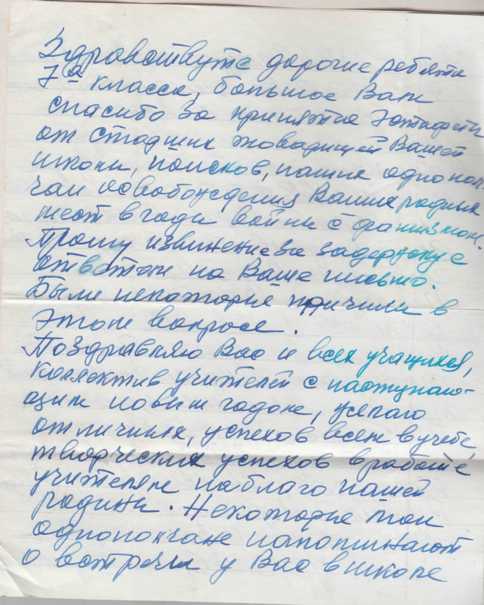 Здравствуйте дорогие ребята
7а класса, большое Вам
спасибо за принятие эстафеты
от старших товарищей Вашей
школы, поисков, наших однопол
чан освобождения Ваших родных
мест в годы войны с фашизмом.
Прошу извинение за задержку с
ответом на Ваше письмо.
Были некоторые причины в
этом вопросе.
Поздравляю Вас и всех учащихся,
коллектив учителей с наступаю-
щим новым годом, желаю
отличных, успехов всем в учебе,
творческих успехов в работе
учителям на благо нашей
родины. Некоторые мои
однополчане напоминают
о встречи у Вас в школе